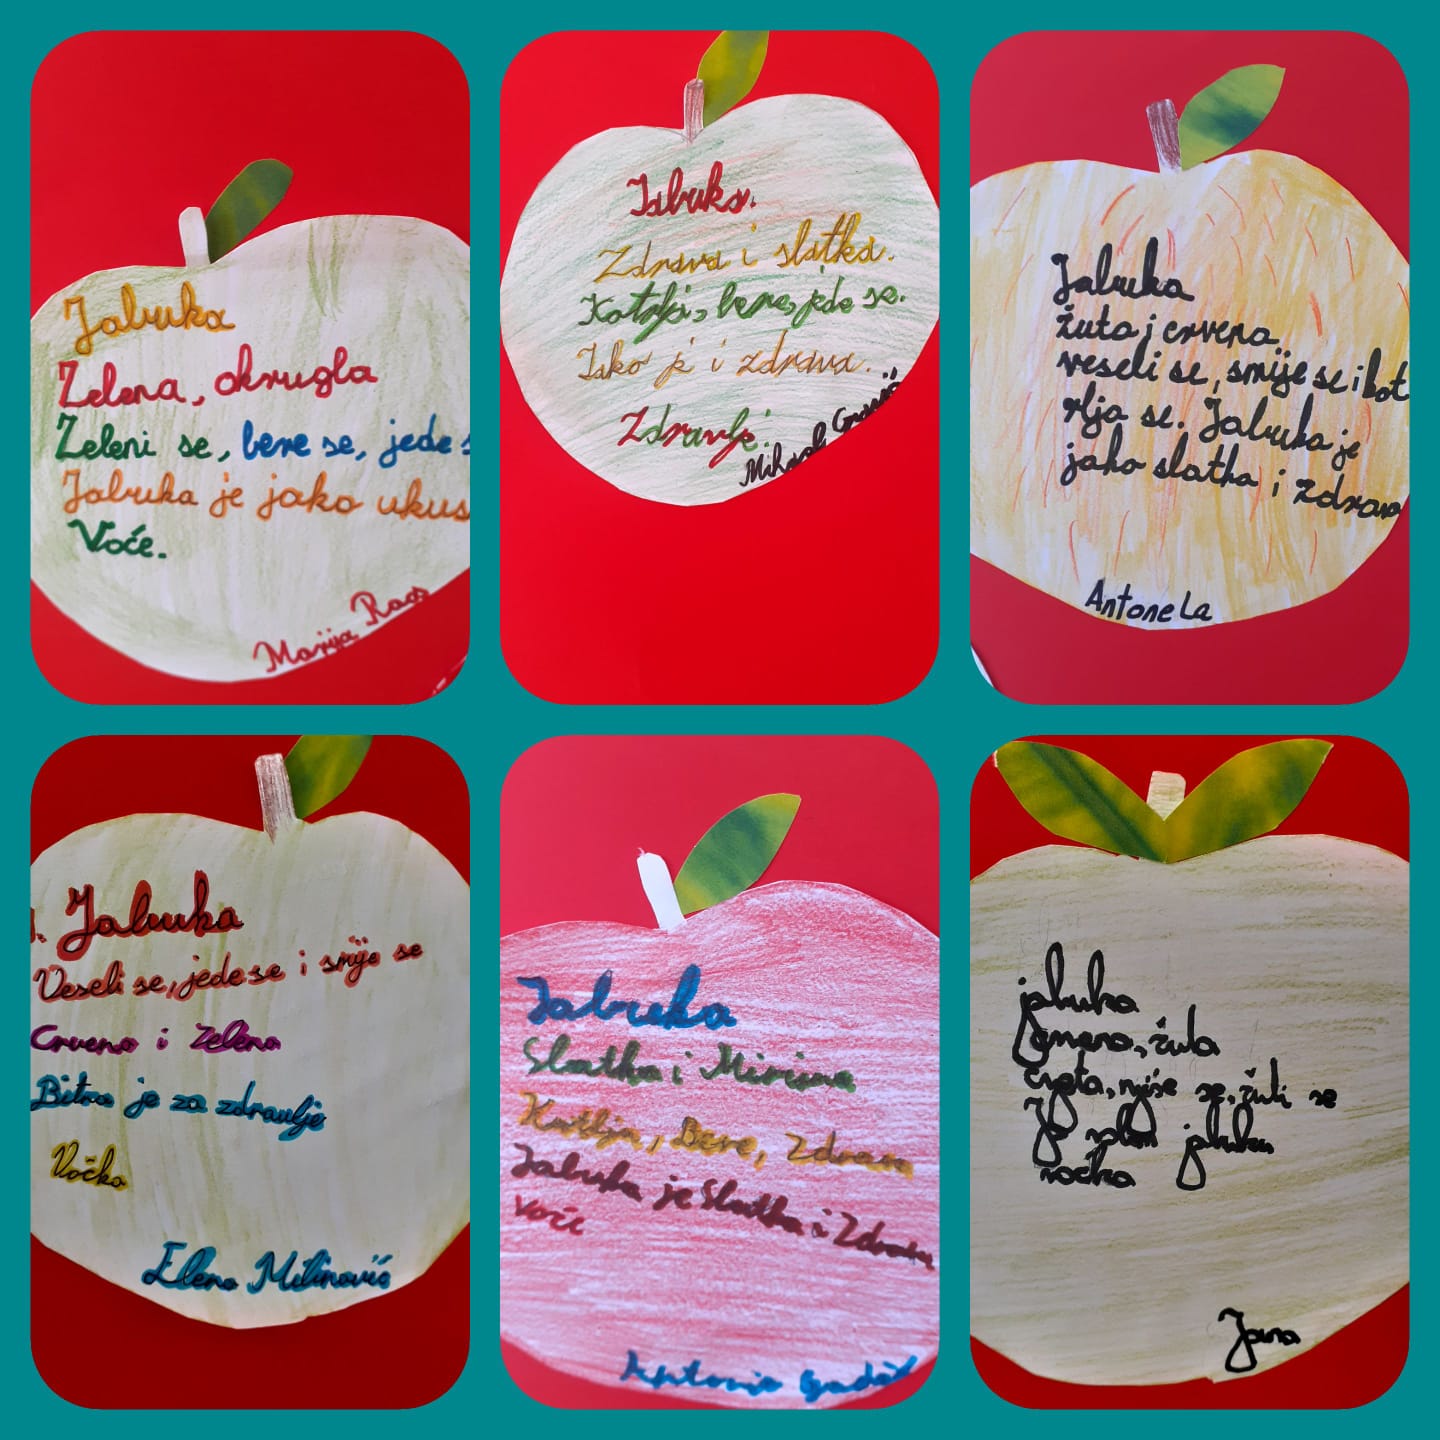 Jabuka
Zelena, okrugla
Zeleni se, bere se, jede s
Jabuka je jako ukus
Voće.
Marija
Jabuka.
Zdrava i slatka.
Kotrlja, bere, jede se.
Jako je i zdrava.
Zdravlje.
Mihael
Jabuka
Žuta i crvena
veseli se, smije se i kot
rlja se. Jabuka je
jako slatka i zdrava
Antonela
Jabuka
Veseli se, jede se i smije se
Crvena i zelena
Bitna je za zdravlje
Voćka
Elena Milinović
Jabuka
Slatka i Mirisna
Kotrlja, Bere, Zdrava
Jabuka je Slatka i Zdrava
voće
jabuka
žuta
se, žuti se
Je jabuka
voćka
Jana